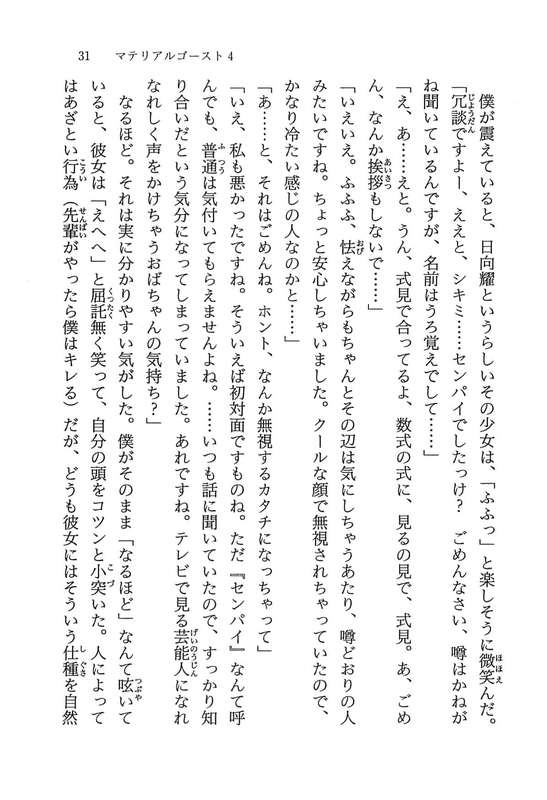 31　マテリアルゴースト4
　僕が震えていると、日向耀というらしいその少女は、「ふふっ」と楽しそうに微笑んだ。
「冗談ですよー、ええと、シキミ……センパイでしたっけ？　ごめんなさい、噂はかねが
ね聞いているんですが、名前はうろ覚えでして……」
「え、あ……えと。うん、式見で合ってるよ、数式の式に、見るの見で、式見。あ、ごめ
ん、なんか挨拶もしないで……」
「いえいえ。ふふふ、怯えながらもちゃんとその辺は気にしちゃうあたり、噂どおりの人
みたいですね。ちょっと安心しちゃいました。クールな顔で無視されちゃっていたので、
かなり冷たい感じの人なのかと……」
「あ……と、それはごめんね。ホント、なんか無視するカタチになっちゃって」
「いえ、私も悪かったですね。そういえば初対面ですものね。ただ『センパイ』なんて呼
んでも、普通は気付いてもらえませんよね。……いつも話に聞いていたので、すっかり知
り合いだという気分になってしまっていました。あれですね。テレビで見る芸能人になれ
なれしく声をかけちゃうおばちゃんの気持ち？」
　なるほど。それは実に分かりやすい気がした。僕がそのまま「なるほど」なんて呟いて
いると、彼女は「えへへ」と屈託無く笑って、自分の頭をコツンと小突いた。人によって
はあざとい行為（先輩がやったら僕はキレる）だが、どうも彼女にはそういう仕種を自然